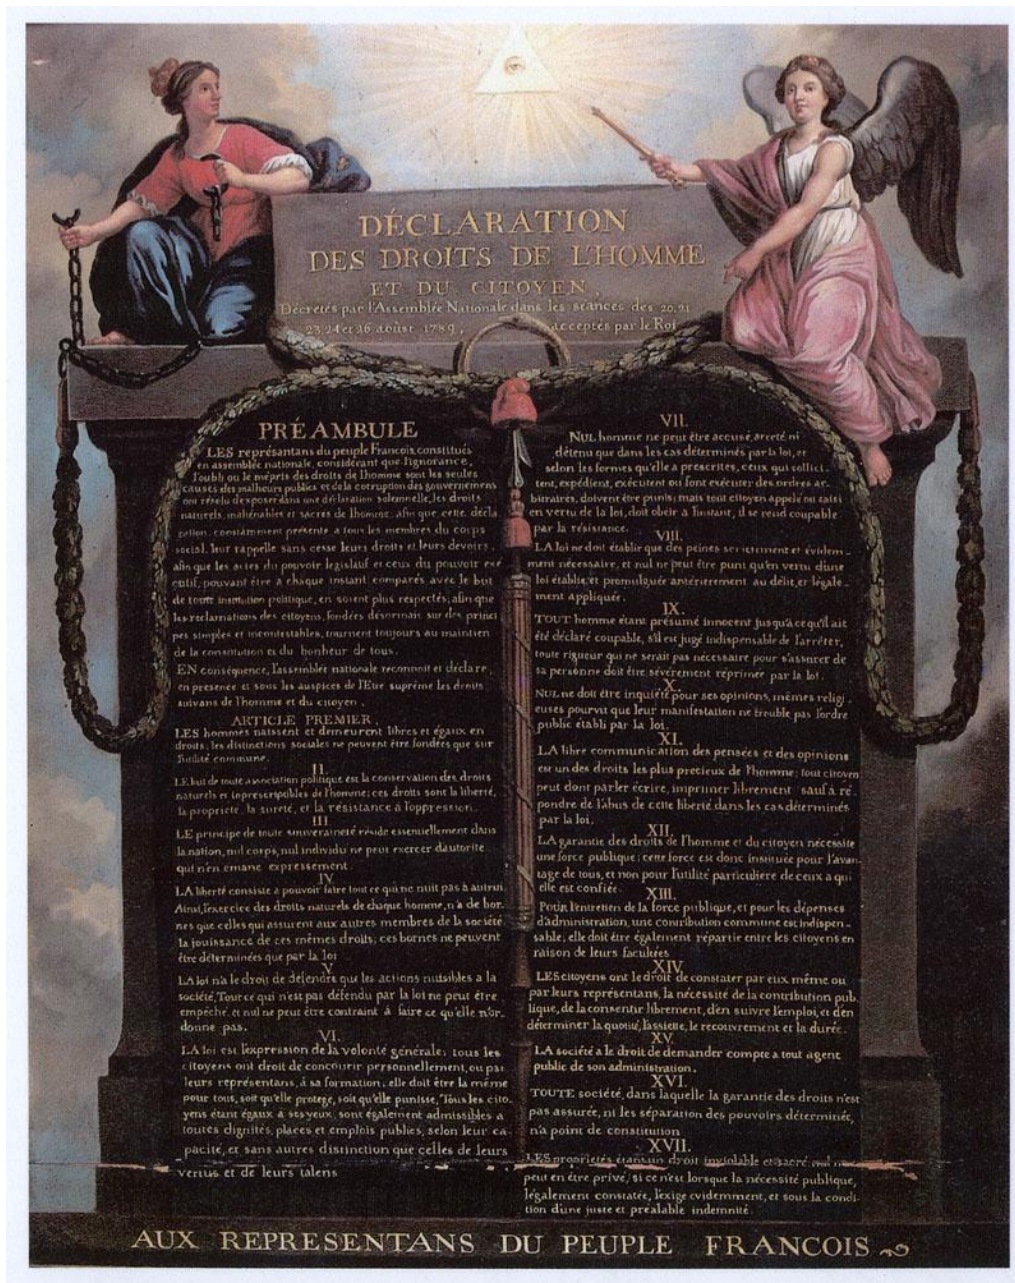 DÉCLARATION
DES DROITS DE L'HOMME
ET DU CITOYEN,
Décretés par l'Assemblée Nationale dans les séances des 20, 21
23, 24 et 26 aoûst 1789, acceptés par le Roi
PRÉAMBULE
LES représantans du peuple François, constitués
en assemblée nationale, considérant que l'ignorance,
l'oubli ou le mépris des droits de l'homme sont les seules
causes des malheurs publics et de la corruption des gouvernemens
ont résolu d'exposer dans une déclaration solemnelle, les droits
naturels, inaliénables et sacrés de l'homme; afin que cette décla
ration, constamment présente a tous les membres du corps
social, leur rappelle sans cesse leurs droits et leurs devoirs,
afin que les actes du pouvoir legislatif et ceux du pouvoir exé
cutif, pouvant être a chaque instant comparés avec le but
de toute institution politique, en soient plus respectés; afin que
les reclamations des citoyens, fondées désormais sur des princi
pes simples et incontestables, tournent toujours au maintien
de la constitution et du bonheur de tous.
EN conséquence, l'assemblée nationale reconnoit et déclare,
en presence et sous les auspices de l'Etre suprême les droits
suivans de l'homme et du citoyen.
ARTICLE PREMIER.
LES hommes naissent et demeurent libres et égaux en
droits, les distinctions sociales ne peuvent être fondées que sur
l'utilité commune.
II.
LE but de toute association politique est la conservation des droits
naturels et inprescriptibles de l'homme; ces droits sont la liberté,
la propriété, la sureté, et la résistance à l'oppression.
III
LE principe de toute souveraineté réside essentiellement dans
la nation, nul corps, nul individu ne peut exercer d'autorité
qui n'en emane expressement.
IV
LA liberté consiste a pouvoir faire tout ce qui ne nuit pas à autrui.
Ainsi, l'exercice des droits naturels de chaque homme, n'a de bor.
nes que celles qui assurent aux autres membres de la société
la jouissance de ces mêmes droits; ces bornes ne peuvent
être déterminées que par la loi
V
LA loi n'a le droit de défendre que les actions nuisibles a la
société. Tout ce qui n'est pas défendu par la loi ne peut être
empêché, et nul ne peut être contraint à faire ce qu'elle n'or.
donne pas.
VI.
LA loi est l'expression de la volonté générale; tous les
citoyens ont droit de concourir personnellement, ou par
leurs représentans, á sa formation; elle doit être la même
pour tous, soit qu'elle protege, soit qu'elle punisse, Tous les cito-
yens étant égaux a ses yeux, sont également admissibles a
toutes dignités, places et emplois publics, selon leur ca-
pacité, et sans autres distinction que celles de leurs
vertus et de leurs talens
VII.
NUL homme ne peut être accusé, arreté ni
détenu que dans les cas déterminés par la loi, et
selon les formes qu'elle a prescrites, ceux qui sollici-
tent, expédient, exécutent ou font exécuter des ordres ar-
bitraires, doivent être punis; mais tout citoyen appelé ou saisi
en vertu de la loi, doit obeir a l'instant, il se rend coupable
par la résistance.
VIII.
LA loi ne doit établir que des peines strictement et évidem-
ment nécessaire, et nul ne peut être puni qu'en vertu d'une
loi établie et promulguée antérierment au délit, et légale-
ment appliquée.
IX.
TOUT homme étant présumé innocent jusqu'a ce qu'il ait
été déclaré coupable, s'il est jugé indispensable de l'arrêter,
toute rigueur qui ne serait pas nécessaire pour s'assurer de
sa personne doit être sévèrement réprimée par la loi.
X.
NUL ne doit être inquiété pour ses opinions, mêmes religi
euses pourvu que leur manifestation ne trouble pas l'ordre
public établi par la loi.
XI.
LA libre communication des pensées et des opinions
est un des droits les plus precieux de l'homme; tout citoyen
peut dont parler écrire, imprimer librement sauf à ré
pondre de l'abus de cette liberté dans les cas déterminés
par la loi.
XII.
LA garantie des droits de l'homme et du citoyen nécessite
une force publique; cette force est donc instituée pour l'avan-
tage de tous, et non pour l'utilité particuliere de ceux a qui
elle est confiée.
XIII.
POUR l'entretien de la force publique, et pour les dépenses
d'administration, une contribution commune est indispen-
sable; elle doit être également répartie entre les citoyens en
raison de leurs facultées
XIV
LES citoyens ont le droit de constater par eux même ou
par leurs représentans, la nécessité de la contribution pub-
lique, de la consentir librement, d'en suivre l'emploi, et d'en
déterminer la quotité, l'assiette, le recouvrement et la durée.
XV
LA société a le droit de demander compte a tout agent
public de son administration.
XVI.
TOUTE société, dans laquelle la garantie des droits n'est
pas assurée, ni les séparation des pouvoirs déterminée,
n'a point de constitution
XVII.
LES proprietés étant un droit inviolable et sacré, nul ne
peut en être privé, si ce n'est lorsque la nécessité publique,
légalement constatée, l'exige evidemment, et sous la condi-
tion d'une juste et préalable indemnité.
AUX REPRESENTANS DU PEUPLE FRANCOIS